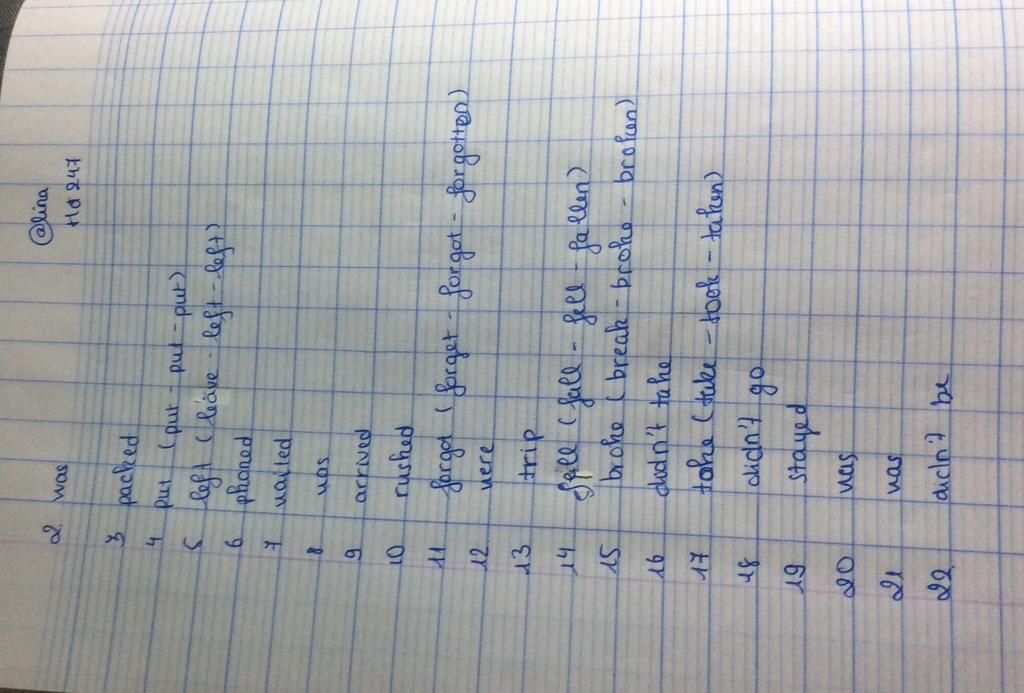 @lina
Hd 247
2 was
3 packed
4 put (put - put - put)
5 left (leave - left - left)
6 phoned
7 waited
8 was
9 arrived
10 rushed
11 forgot (forget - forgot - forgotten)
12 were
13 trip
14 fell (fall - fell - fallen)
15 broke (break - broke - broken)
16 didn't take
17 take (take - took - taken)
18 didn't go
19 stayed
20 was
21 was
22 didn't be